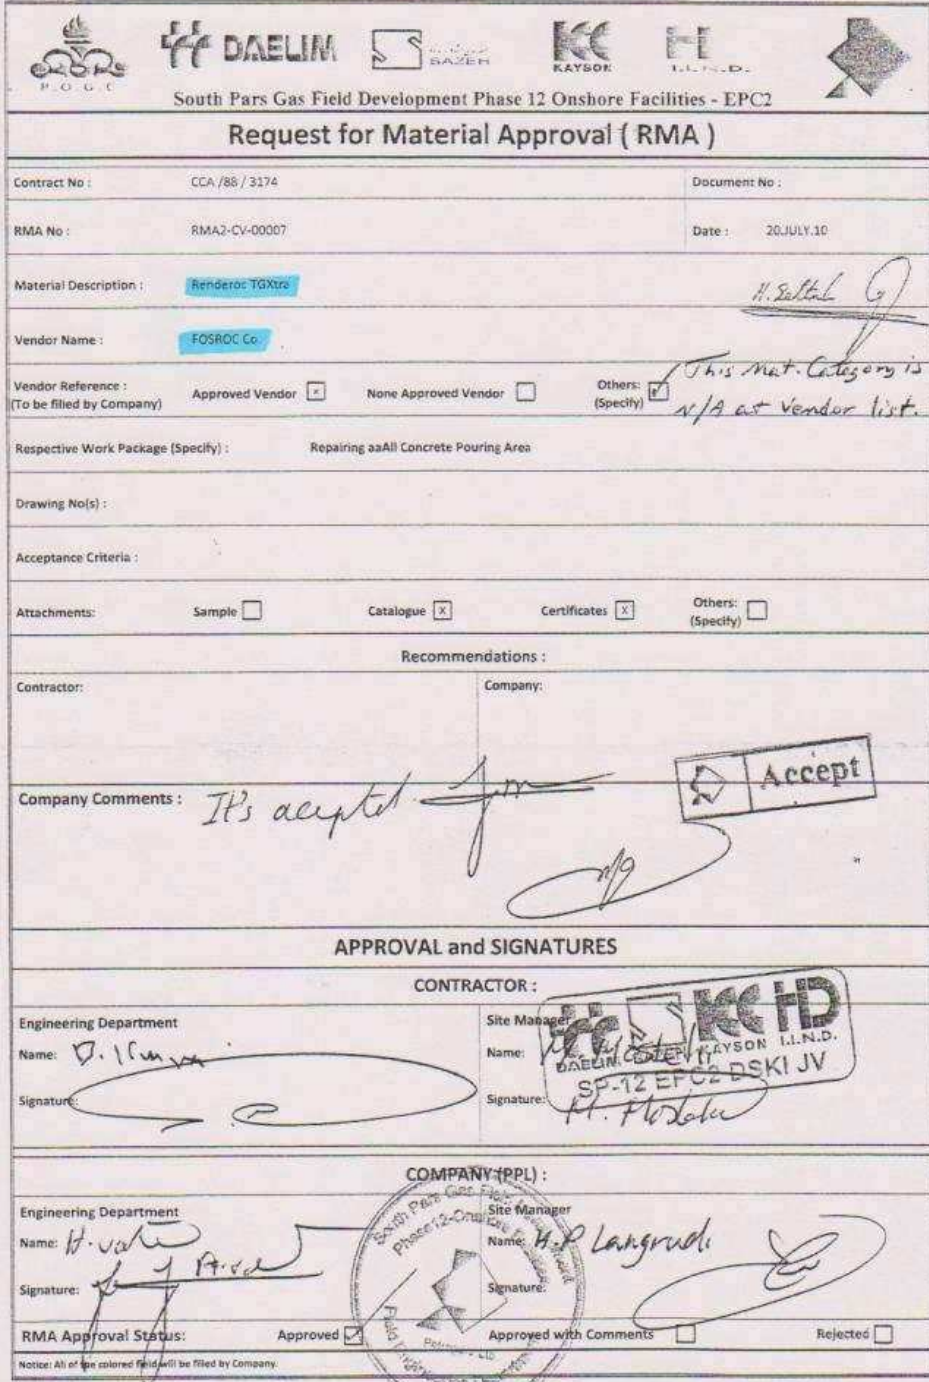 P.O.G.C
DAELIM
SAZEH
KAYSON
I.I.N.D.
South Pars Gas Field Development Phase 12 Onshore Facilities - EPC2
Request for Material Approval ( RMA )
Contract No : CCA /88 / 3174 Document No :
RMA No : RMA2-CV-00007 Date : 20.JULY.10
Material Description : Renderoc TGXtra
Vendor Name : FOSROC Co.
Vendor Reference : (To be filled by Company) Approved Vendor x None Approved Vendor Others: (Specify) ✓ This Mat. Category is
N/A at Vendor list.
Respective Work Package (Specify) : Repairing aaAll Concrete Pouring Area
Drawing No(s) :
Acceptance Criteria :
Attachments: Sample Catalogue x Certificates x Others: (Specify)
Recommendations :
Contractor: Company:
Accept
Company Comments : It's acepted
APPROVAL and SIGNATURES
CONTRACTOR :
Engineering Department Site Manager
Name: Name:
DAELIM KAYSON I.I.N.D.
SP-12 EPC2 DSKI JV
Signature: Signature:
COMPANY (PPL) :
Engineering Department Site Manager
Name: Name: H.P Langrudi
Signature: Signature:
RMA Approval Status: Approved ✓ Approved with Comments Rejected
Notice: All of the colored field will be filled by Company.